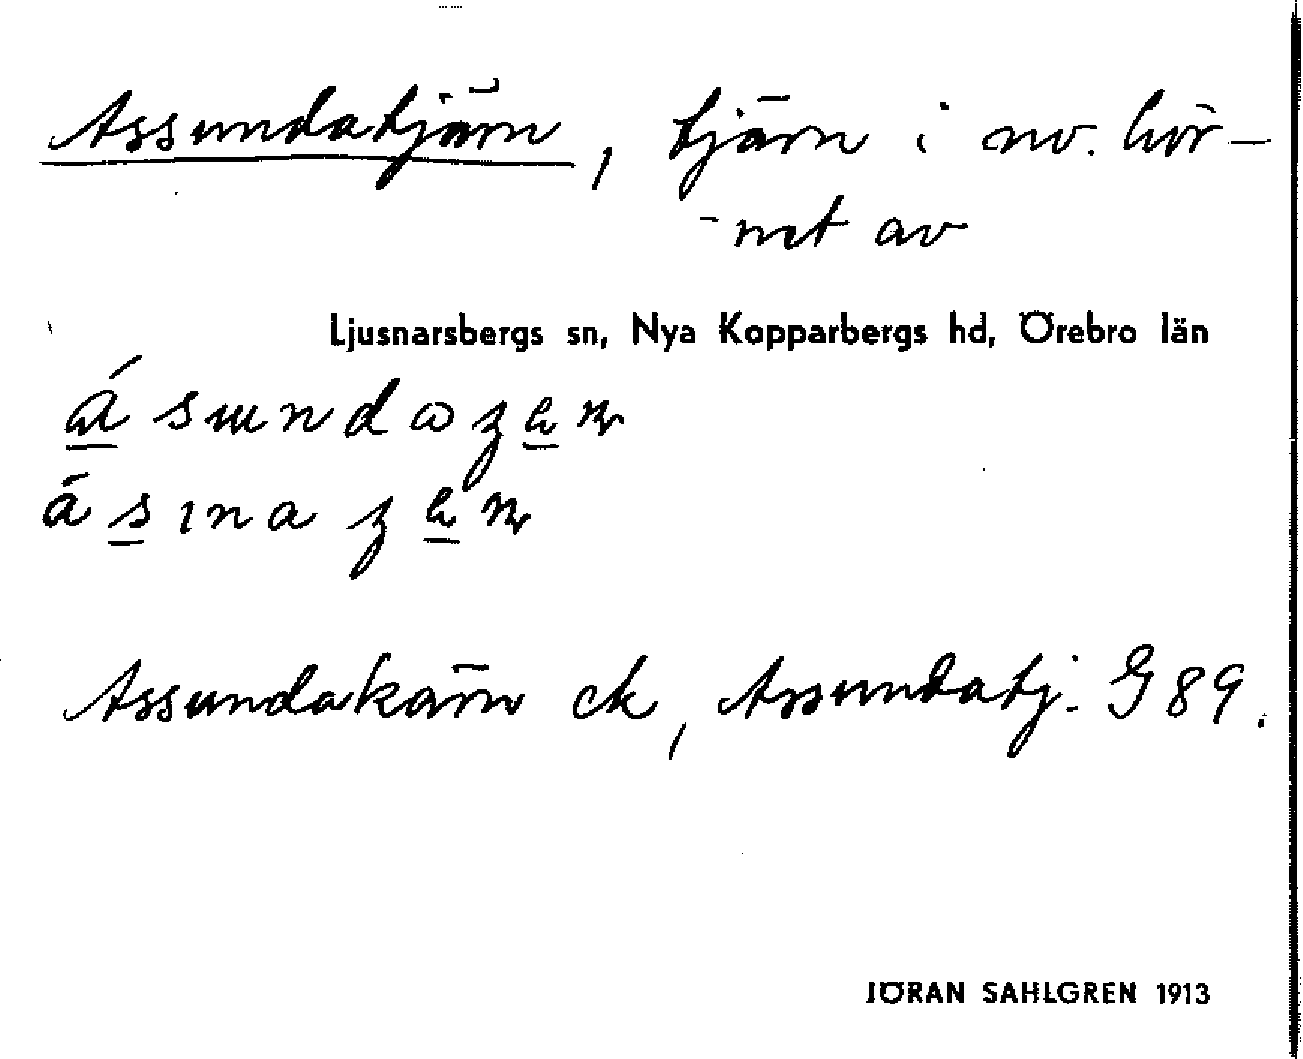 Assundatjärn, tjärn i nv. hör-
-net av
Ljusnarsbergs sn, Nya Kopparbergs hd, Örebro län
Assundakärn ek, Assundatj. G 89.
JÖRAN SAHLGREN 1913